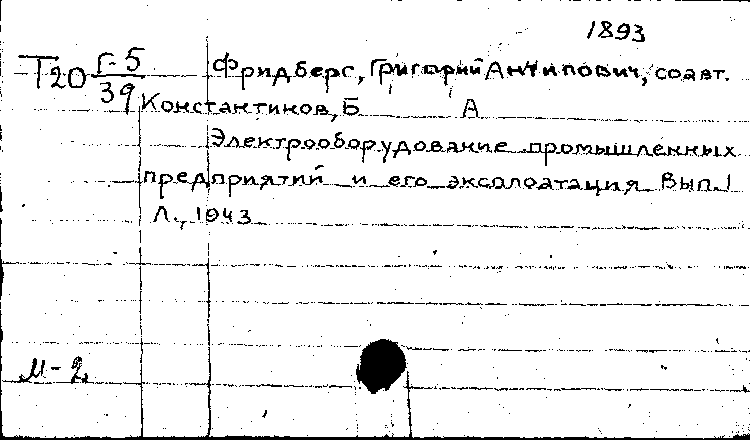 1893
Т20 Г-5/39 Фридберг, Григорий Антипович, соавт.
Константинов, Б А
Электрооборудование промышленных
предприятий и его эксплоатация Вып. 1
Л., 1943
М-2